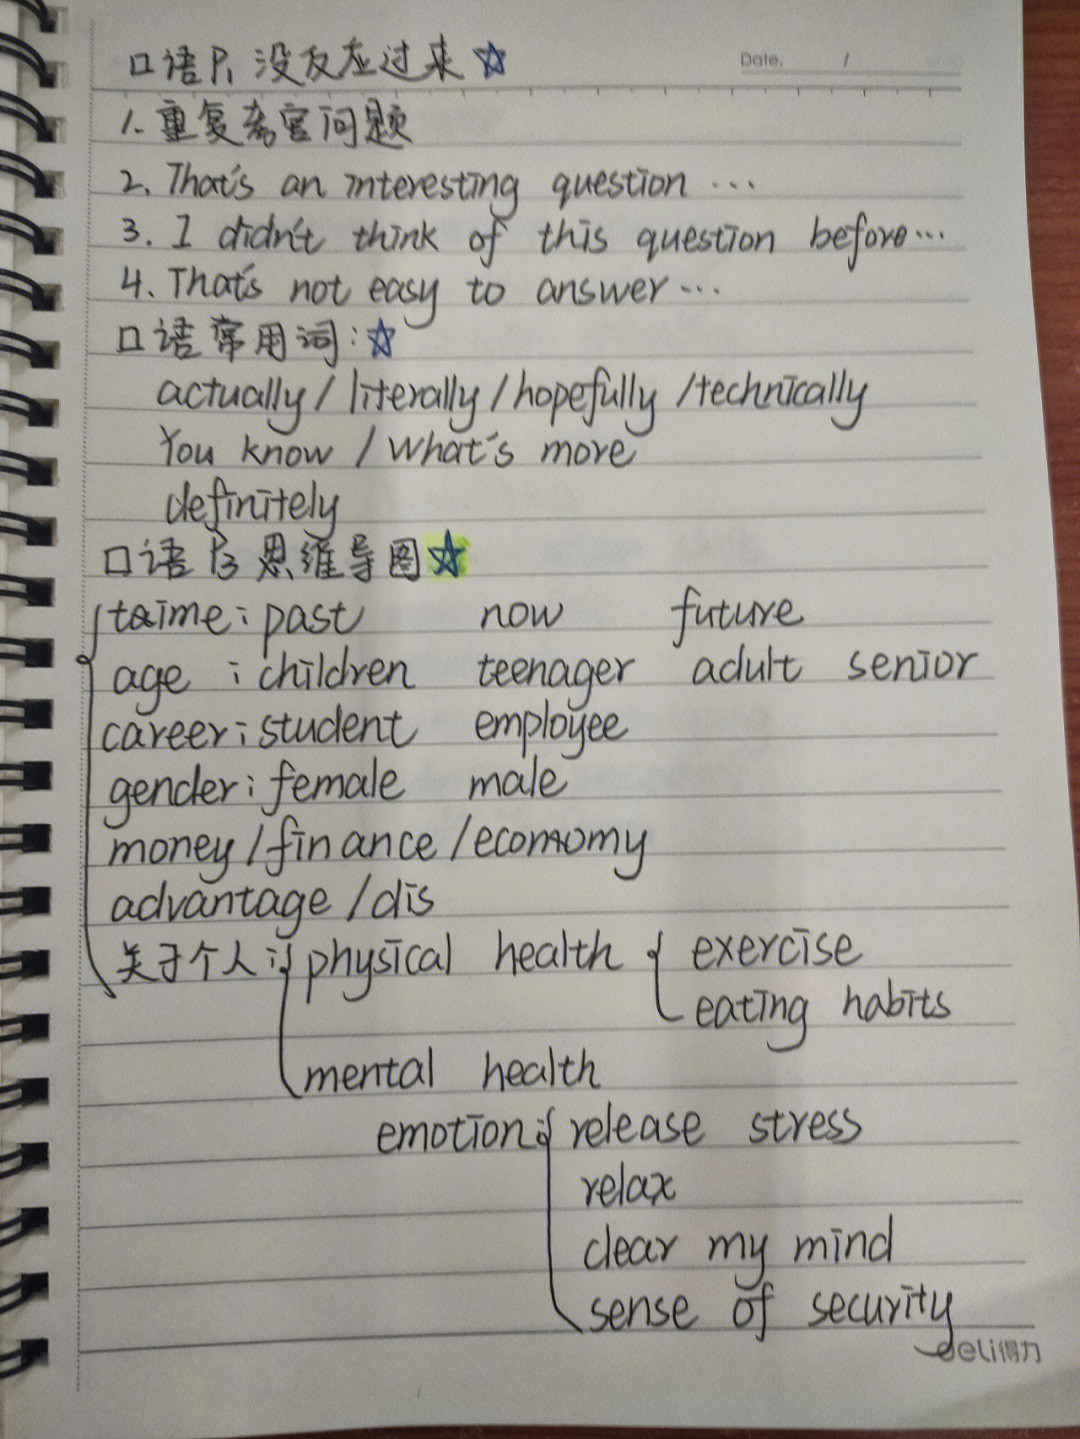 口语P1 没反应过来☆
Date. /
1.重复考官问题
2. That's an interesting question ...
3. I didn't think of this question before...
4. That's not easy to answer...
口语常用词:☆
actually / literally / hopefully / technically
You know / What's more
definitely
口语 P3 思维导图☆
taime: past now future
age : children teenager adult senior
career: student employee
gender: female male
money / finance / economy
advantage / dis
关于个人: { physical health { exercise
eating habits
mental health
emotion: { release stress
relax
clear my mind
sense of security
deli得力